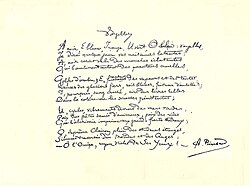 Voyelles
A noir, E blanc, I rouge, U vert, O bleu : voyelles,
Je dirai quelque jour vos naissances latentes :
A, noir corset velu des mouches éclatantes
Qui bombinent autour des puanteurs cruelles,
Golfes d'ombre ; E, des vapeurs et des tentes,
Lances des glaciers fiers, rois blancs, frissons d'ombelles ;
I, pourpres, sang craché, rire des lèvres belles
Dans la colère ou les ivresses pénitentes ;
U, cycles, vibrements divins des mers virides,
Paix des pâtis semés d'animaux, paix des rides
Que l'alchimie imprime aux grands fronts studieux ;
O, suprême Clairon plein des strideurs étranges,
Silences traversés des Mondes et des Anges :
— O l'Oméga, rayon violet de Ses Yeux !
A. Rimbaud